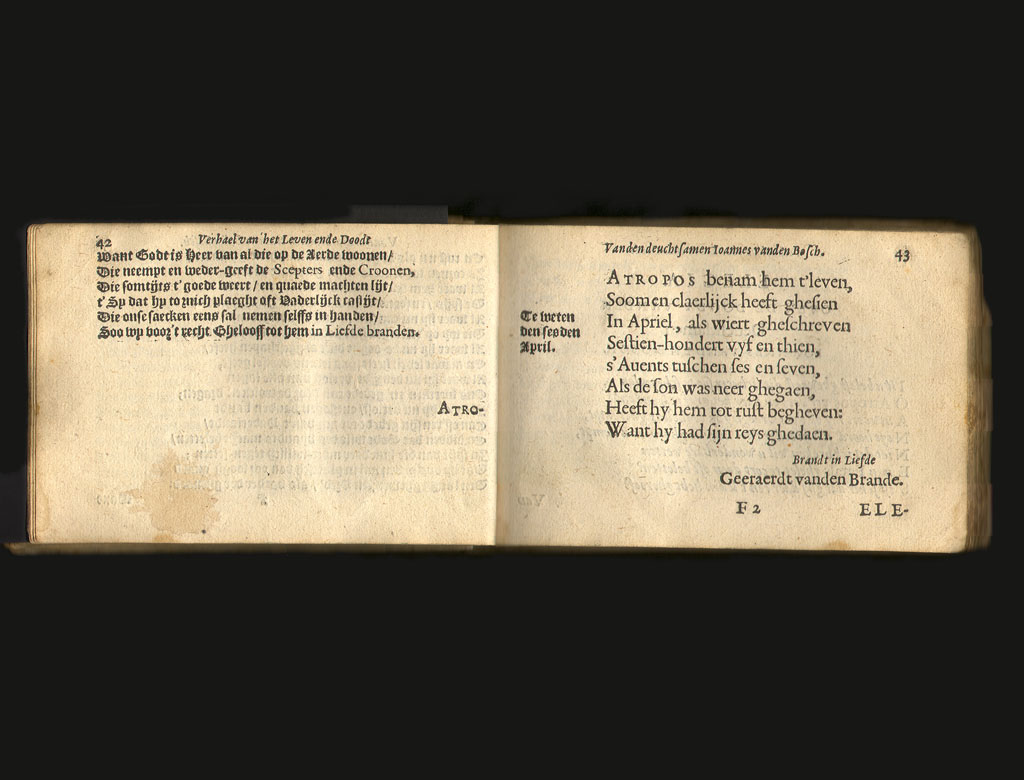 42
Verhael van het Leven ende Doodt
Want Godt is Heer van al die op de Aerde woonen/
Die neempt en weder-geeft de Scepters ende Croonen,
Die somtijts t'goede weert / en quaede machten lijt/
t'Sy dat hy to mich plaeght oft Vaderlijck castijt/
Die onse saecken eens sal nemen selffs in handen/
Soo wy voor't recht Gheloof tot hem in Liefde branden.
ATRO-
Vanden deuchtsamen Ioannes vanden Bosch.
43
ATROPOS benam hem t'leven,
Soomen claerlijck heeft ghesien
In Apriel, als wiert gheschreven
Sestien-hondert vyf en thien,
s'Auents tuschen ses en seven,
Als de son was neer ghegaen,
Heeft hy hem tot rust begheven:
Want hy had sijn reys ghedaen.
Te weten
den sesden
April.
Brandt in Liefde
Geeraerdt vanden Brande.
F 2
ELE-